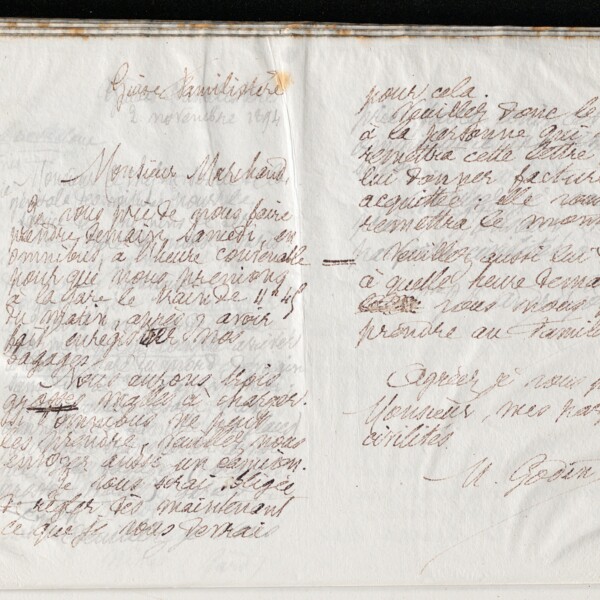 Guise Familistère
2 novembre 1894
Monsieur Marchand,
Je vous prie de nous faire
prendre demain samedi, en
omnibus, à l'heure convenable
pour que nous prenions
à la gare le train de 11h 45
du matin, après y avoir
fait enregistrer nos
bagages.
Nous aurons trois
grosses malles à charger.
Si l'omnibus ne peut
les prendre, veuillez nous
envoyer aussi un camion.
Je vous serai obligée
de régler dès maintenant
ce que je vous devrais
pour cela.
Veuillez donc le
à la personne qui
remettra cette lettre
lui donner facture
acquittée; elle vous
remettra le mon
Veuillez aussi lui
à quelle heure dema
vous nous
prendre au Famili
Agréez je vous p
Monsieur, mes
civilités.
M. Godin